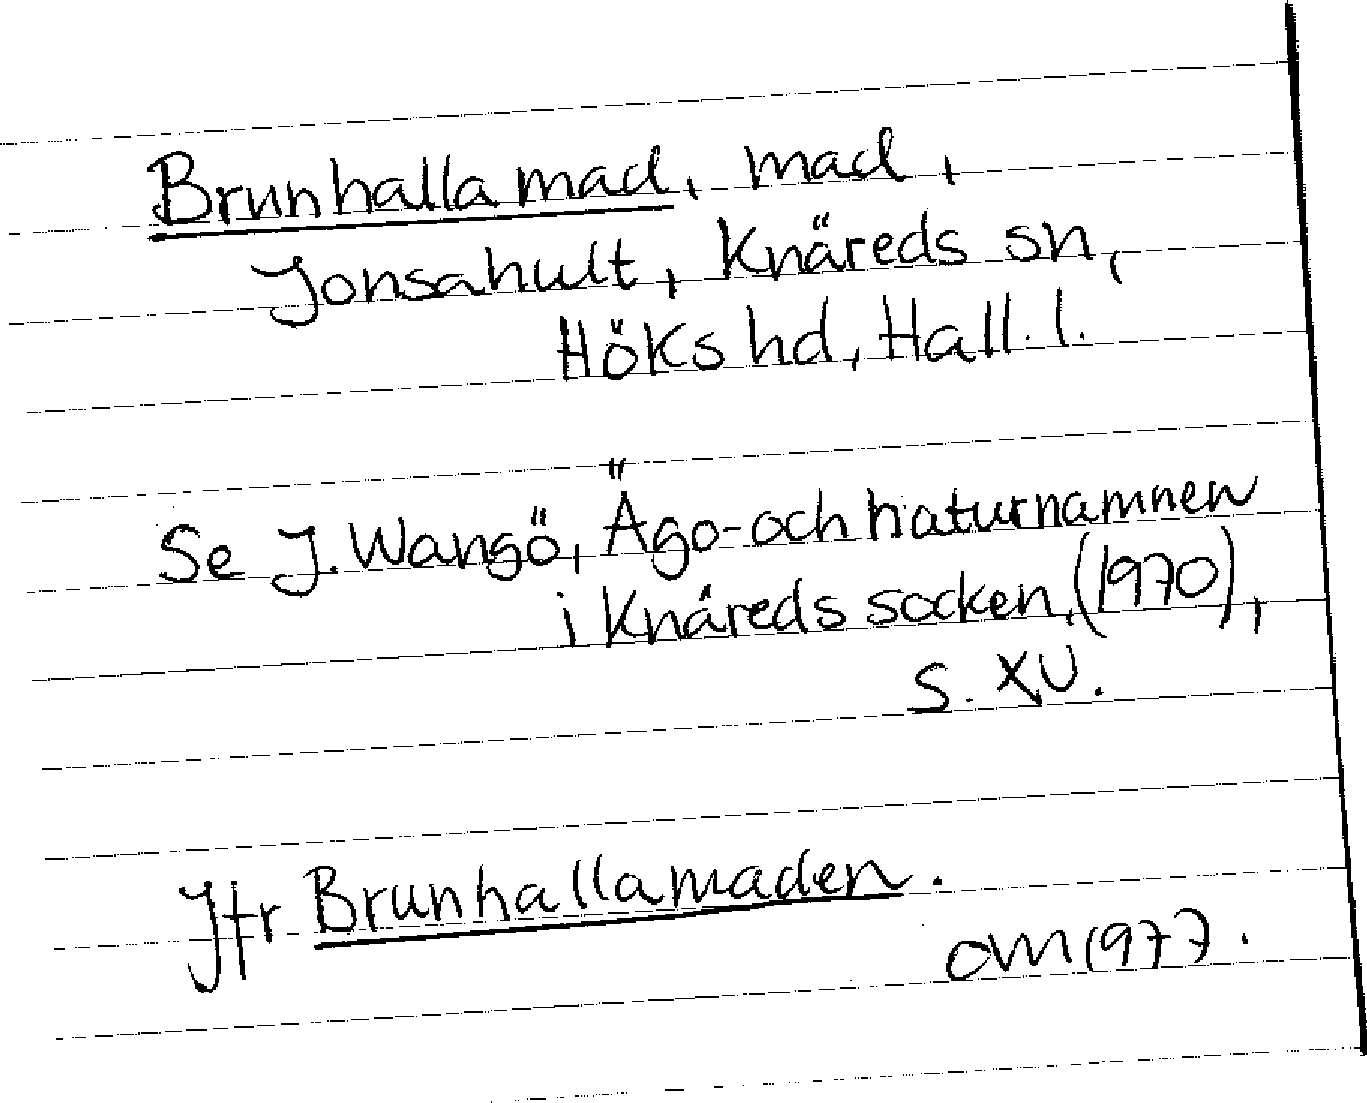 Brunhallamad, mad,
Jonsahult, Knäreds sn,
Höks hd, Hall. l.
Se J. Wangö, Ägo- och naturnamnen
i Knäreds socken, (1970),
s. XV.
Jfr Brunhallamaden.
OM 1977.